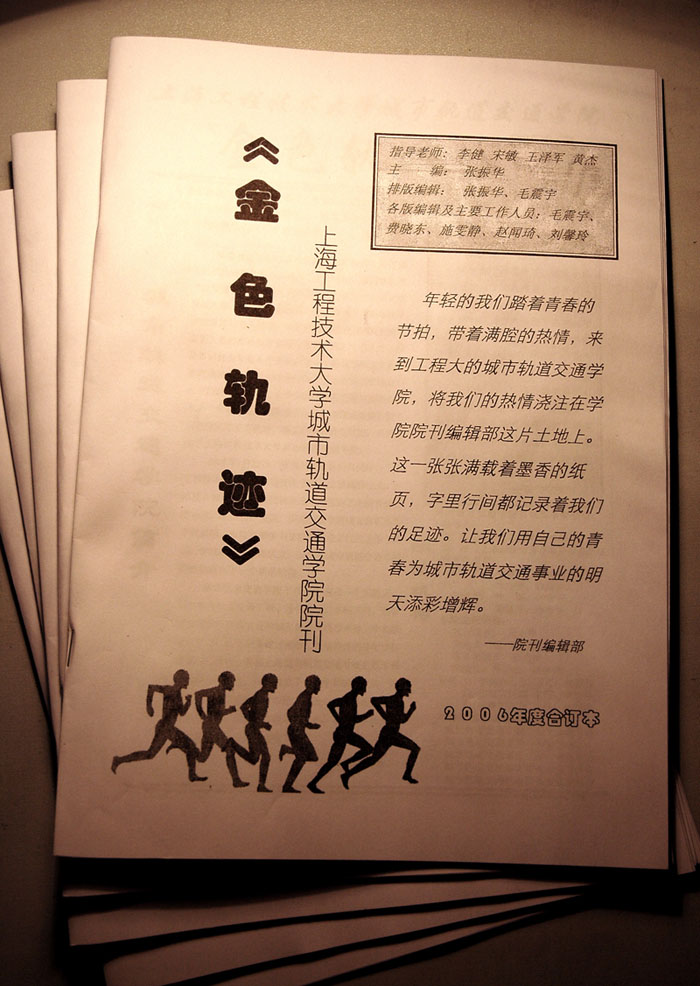 《金色轨迹》
上海工程技术大学城市轨道交通学院院刊
指导老师： 李健 宋敏 王泽军 黄杰
主 编： 张振华
排版编辑： 张振华、毛震宇
各版编辑及主要工作人员：毛震宇、
费晓东、施雯静、赵闻琦、刘馨玲
年轻的我们踏着青春的
节拍，带着满腔的热情，来
到工程大的城市轨道交通学
院，将我们的热情浇注在学
院院刊编辑部这片土地上。
这一张张满载着墨香的纸
页，字里行间都记录着我们
的足迹。让我们用自己的青
春为城市轨道交通事业的明
天添彩增辉。
——院刊编辑部
2006年度合订本